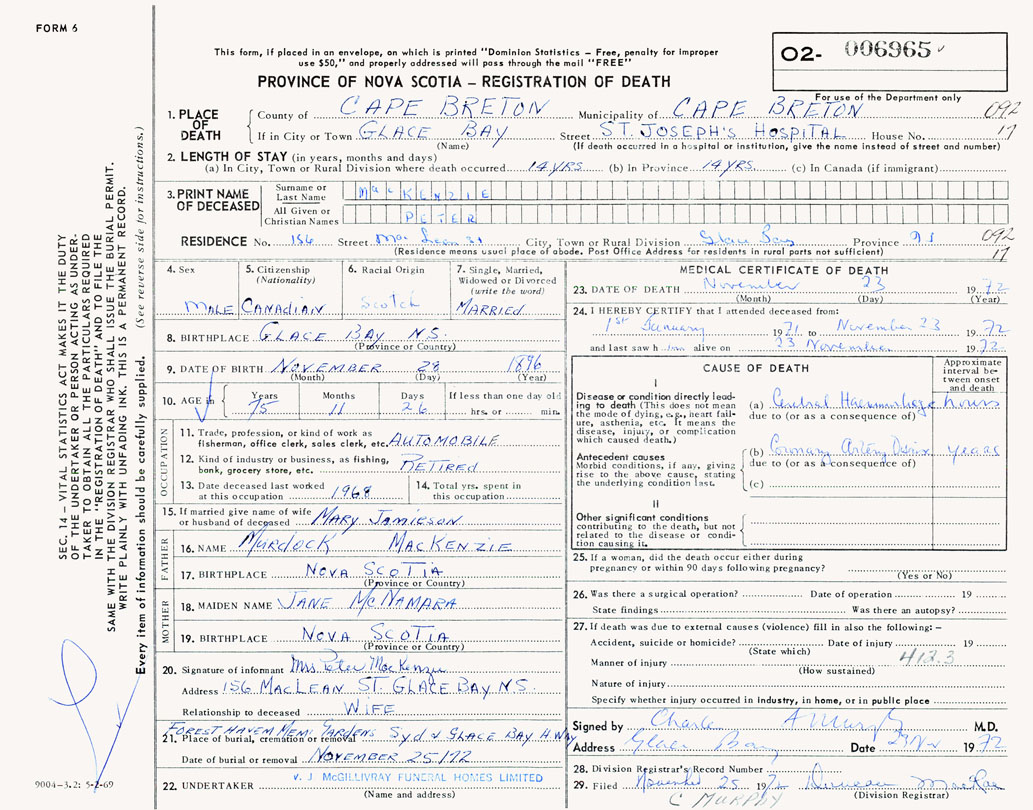 FORM 6
This form, if placed in an envelope, on which is printed "Dominion Statistics – Free, penalty for improper
use $50," and properly addressed will pass through the mail "FREE"
PROVINCE OF NOVA SCOTIA – REGISTRATION OF DEATH
O2- 006965
For use of the Department only
1. PLACE OF DEATH
County of CAPE BRETON Municipality of CAPE BRETON 092
If in City or Town GLACE BAY Street ST. JOSEPH'S HOSPITAL House No. 17
(Name) (If death occurred in a hospital or institution, give the name instead of street and number)
2. LENGTH OF STAY (in years, months and days)
(a) In City, Town or Rural Division where death occurred 14 YRS. (b) In Province 14 YRS. (c) In Canada (if immigrant)
3. PRINT NAME OF DECEASED
Surname or Last Name MacKENZIE
All Given or Christian Names PETER
RESIDENCE No. 156 Street MacLean St City, Town or Rural Division Glace Bay Province N S 092
(Residence means usual place of abode. Post Office Address for residents in rural parts not sufficient) 17
4. Sex MALE
5. Citizenship (Nationality) CANADIAN
6. Racial Origin Scotch
7. Single, Married, Widowed or Divorced (write the word) MARRIED
8. BIRTHPLACE GLACE BAY N.S.
(Province or Country)
9. DATE OF BIRTH NOVEMBER 28 1896
(Month) (Day) (Year)
10. AGE in Years 75 Months 11 Days 26 If less than one day old hrs. or min.
OCCUPATION
11. Trade, profession, or kind of work as fishermen, office clerk, sales clerk, etc. AUTOMOBILE
12. Kind of industry or business, as fishing, bank, grocery store, etc. RETIRED
13. Date deceased last worked at this occupation 1968
14. Total yrs. spent in this occupation
15. If married give name of wife or husband of deceased MARY JAMIESON
FATHER
16. NAME MURDOCK MACKENZIE
17. BIRTHPLACE NOVA SCOTIA
(Province or Country)
MOTHER
18. MAIDEN NAME JANE McNAMARA
19. BIRTHPLACE NOVA SCOTIA
(Province or Country)
20. Signature of informant Mrs Peter MacKenzie
Address 156 MACLEAN ST. GLACE BAY N.S.
Relationship to deceased WIFE
FOREST HAVEN MEM. GARDENS
21. Place of burial, cremation or removal SYD & GLACE BAY H. WAY
Date of burial or removal NOVEMBER 25/72
22. UNDERTAKER V. J. McGILLIVRAY FUNERAL HOMES LIMITED
(Name and address)
MEDICAL CERTIFICATE OF DEATH
23. DATE OF DEATH November 23 1972
(Month) (Day) (Year)
24. I HEREBY CERTIFY that I attended deceased from:
1st January 1971 to November 23 1972
and last saw him alive on 23 November 1972
CAUSE OF DEATH
Approximate interval between onset and death
I
Disease or condition directly leading to death (This does not mean the mode of dying, e.g., heart failure, asthenia, etc. It means the disease, injury, or complication which caused death.)
(a) Cerebral Haemorrhage hours
due to (or as a consequence of)
Antecedent causes
Morbid conditions, if any, giving rise to the above cause, stating the underlying condition last.
(b) Coronary Artery Disease years
due to (or as a consequence of)
(c)
II
Other significant conditions contributing to the death, but not related to the disease or condition causing it.
25. If a woman, did the death occur either during
pregnancy or within 90 days following pregnancy?
(Yes or No)
26. Was there a surgical operation? Date of operation 19
State findings Was there an autopsy?
27. If death was due to external causes (violence) fill in also the following: –
Accident, suicide or homicide? Date of injury 19
(State which) 412.3
Manner of injury
(How sustained)
Nature of injury
Specify whether injury occurred in industry, in home, or in public place
Signed by Charles A Murphy M.D.
Address Glace Bay Date 23 Nov 1972
28. Division Registrar's Record Number
29. Filed November 25 1972 Duncan MacRae
(Division Registrar)
C MURPHY
SEC. 14 – VITAL STATISTICS ACT MAKES IT THE DUTY
OF THE UNDERTAKER OR PERSON ACTING AS UNDER-
TAKER TO OBTAIN ALL THE PARTICULARS REQUIRED
IN THE "REGISTRATION OF DEATH" AND TO FILE THE
SAME WITH THE DIVISION REGISTRAR WHO SHALL ISSUE THE BURIAL PERMIT.
WRITE PLAINLY WITH UNFADING INK. THIS IS A PERMANENT RECORD.
Every item of information should be carefully supplied. (See reverse side for instructions.)
9004-3.2: 5-2-69